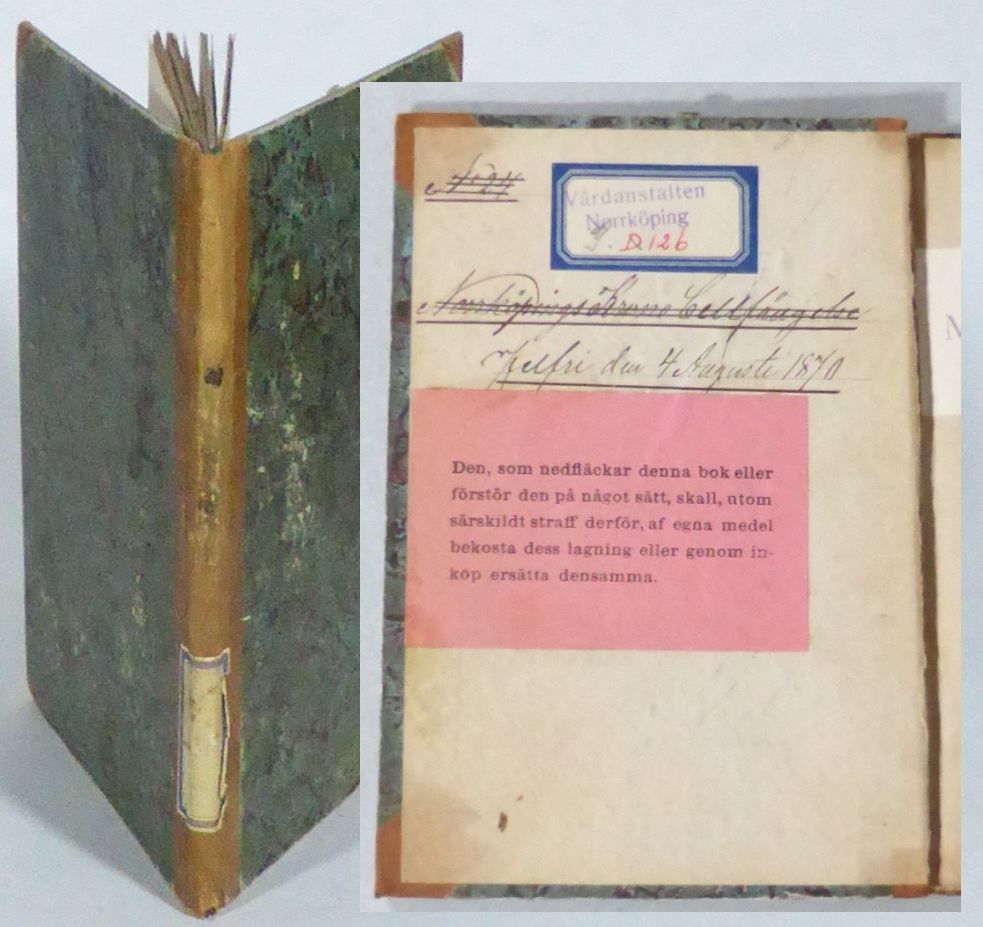 N° 24
Vårdanstalten
Norrköping
D. 126
Norrköpings Krono Cellfängelse
Felfri den 4 Augusti 1870
Den, som nedfläckar denna bok eller
förstör den på något sätt, skall, utom
särskildt straff derför, af egna medel
bekosta dess lagning eller genom in-
köp ersätta densamma.